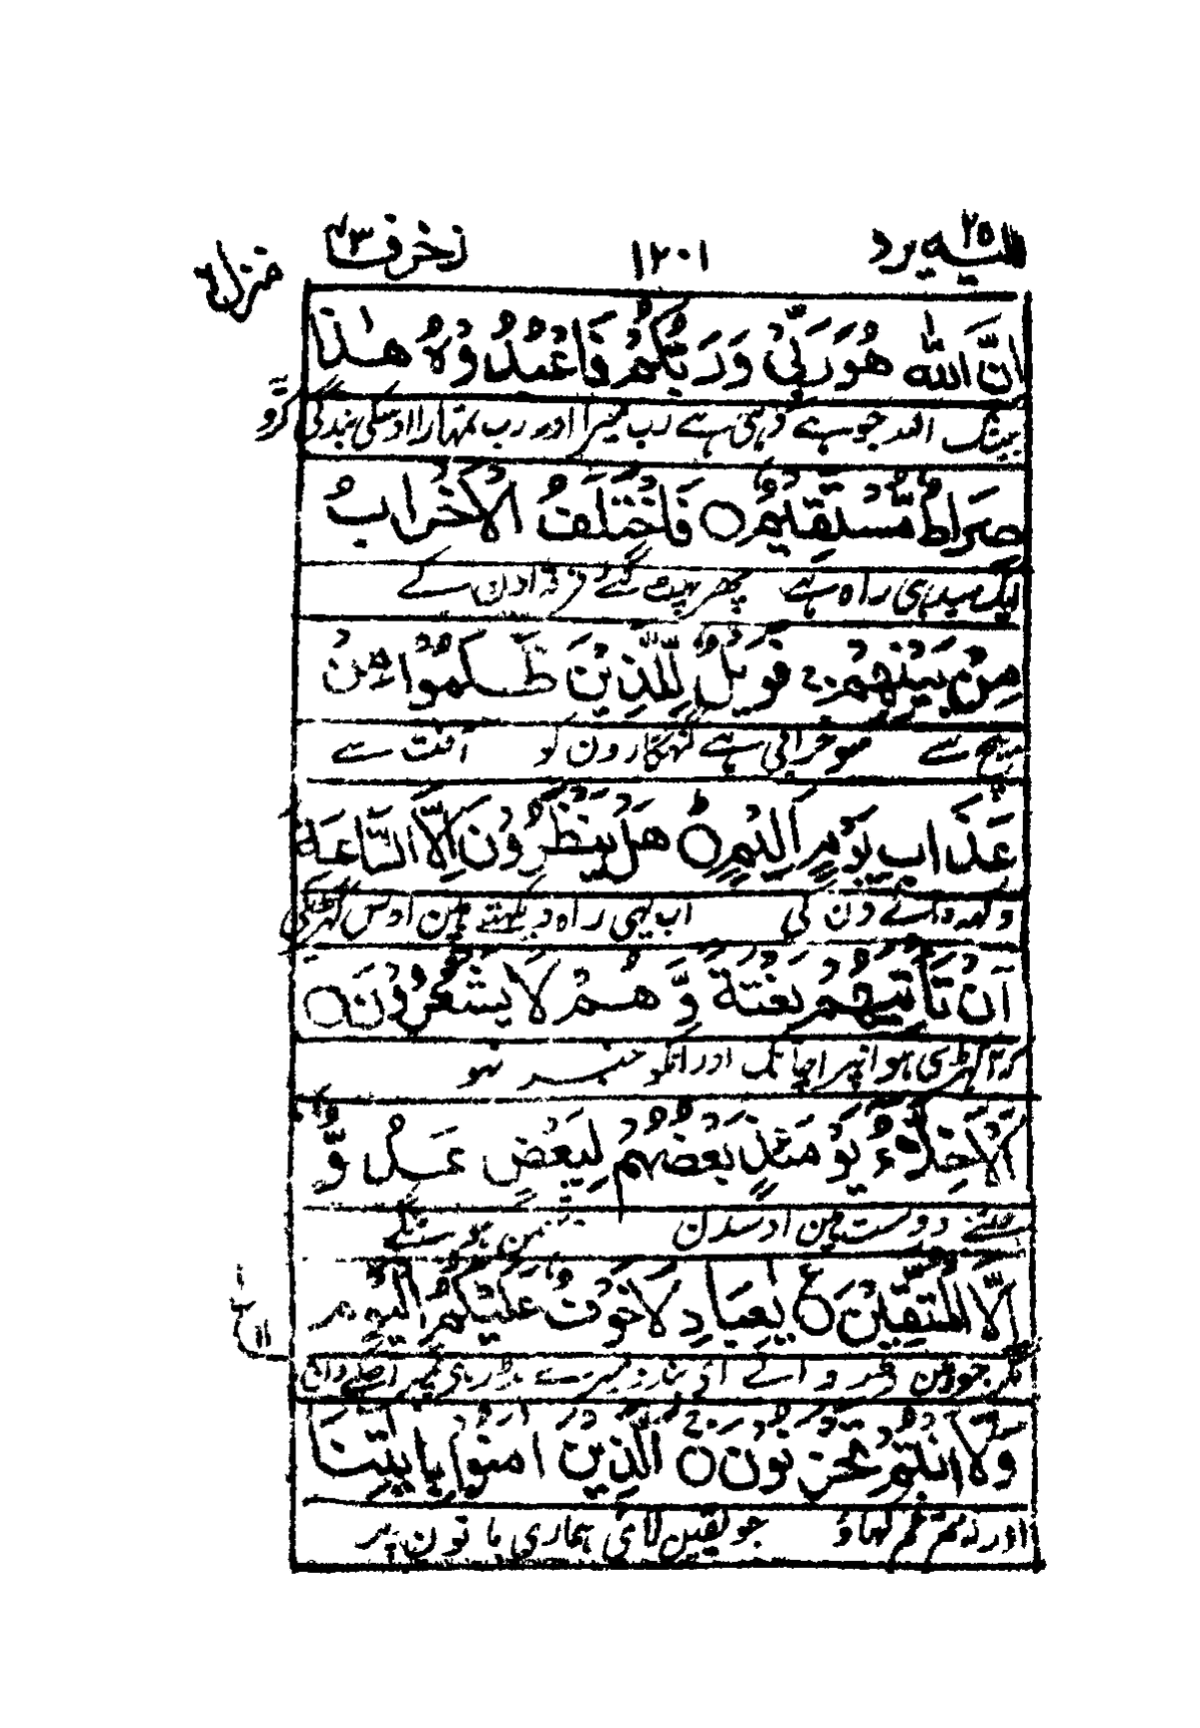 الیہ یرد ٢٥ ١٢٠١ زخرف ٤٣
منزل ٦
اِنَّ اللّٰهَ هُوَ رَبِّيْ وَرَبُّكُمْ فَاعْبُدُوْهُ هٰذَا
بیشک اللہ جو ہے وہی ہے رب میرا اور رب تمہارا اوسکی بندگی کرو
صِرَاطٌ مُّسْتَقِيْمٌ ○ فَاخْتَلَفَ الْاَحْزَابُ
ایک سیدہی راہ ہے پھر پھٹ گئے فرقے اون کے
مِنْۢ بَيْنِهِمْ ۚ فَوَيْلٌ لِّلَّذِيْنَ ظَلَمُوْا مِنْ
بیچ سے سو خرابی ہے گنہگارون کو آفت سے
عَذَابِ يَوْمٍ اَلِيْمٍ ○ هَلْ يَنْظُرُوْنَ اِلَّا السَّاعَةَ
دکھ والے دن کی اب یہی راہ دیکھتے ہین اوس گھڑی کی
اَنْ تَاْتِيَهُمْ بَغْتَةً وَّ هُمْ لَا يَشْعُرُوْنَ ○
کہ آ کھڑی ہو اونپر اچانک اور انکو خبر نہو
اَلْاَخِلَّآءُ يَوْمَئِذٍۢ بَعْضُهُمْ لِبَعْضٍ عَدُوٌّ
جتنے دوست ہین اوسدن دشمن ہونگے
اِلَّا الْمُتَّقِيْنَ ○ يٰعِبَادِ لَا خَوْفٌ عَلَيْكُمُ الْيَوْمَ
مگر جو ہین ڈر والے اے بندو میرے نہ ڈر ہے تمپر آجکے دن
وَلَآ اَنْتُمْ تَحْزَنُوْنَ ○ اَلَّذِيْنَ اٰمَنُوْا بِاٰيٰتِنَا
اور نہ تم غم کھاؤ جو یقین لائے ہماری باتون پر